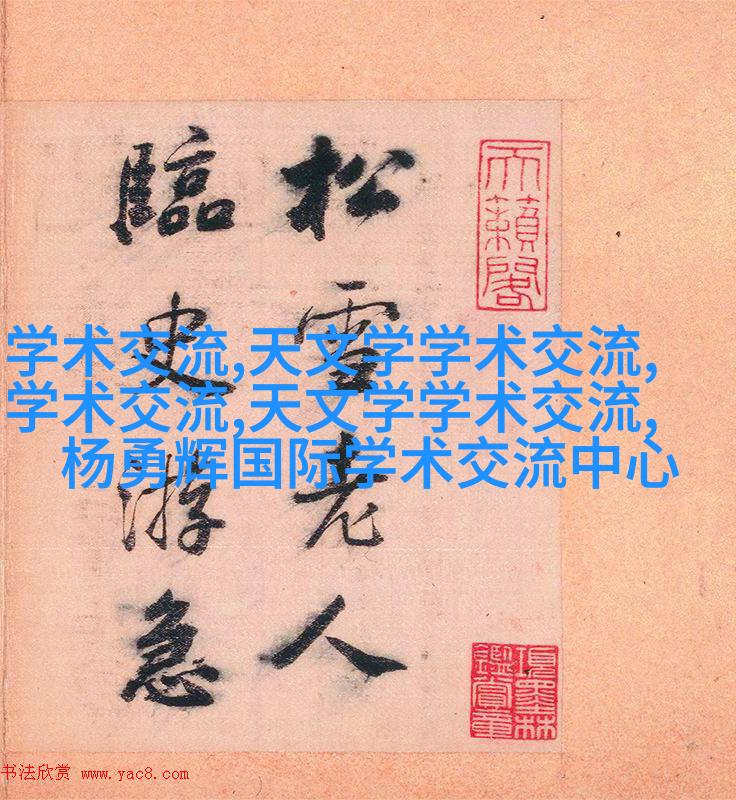 松雪老人
臨史游急
天籟閣
学术交流,天文学学术交流,
学术交流,天文学学术交流、
杨勇辉国际学术交流中心
項墨林
鑑賞章
书法欣赏 www.yac8.com